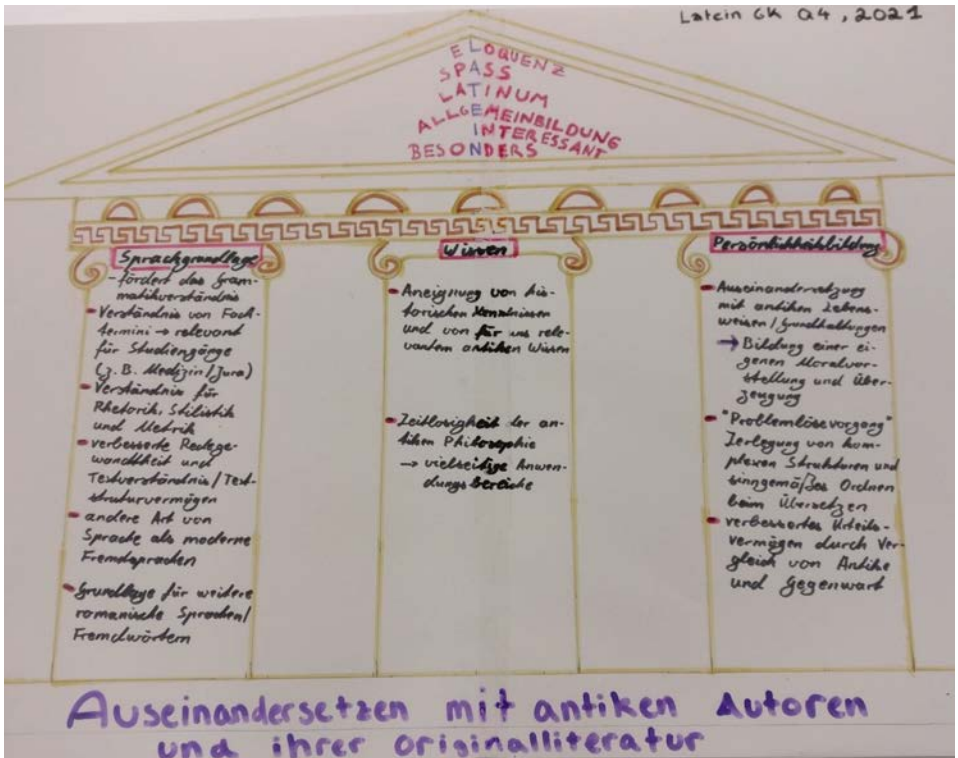 Latein GK Q4, 2021
ELOQUENZ
SPASS
LATINUM
ALLGEMEINBILDUNG
INTERESSANT
BESONDERS
Sprachgrundlage
- fördert das Gram-
matikverständnis
- Verständnis von Fach-
termini → relevant
für Studiengänge
(z. B. Medizin/Jura)
- Verständnis für
Rhetorik, Stilistik
und Metrik
- verbesserte Redege-
wandtheit und
Textverständnis/Text-
strukturvermögen
- andere Art von
Sprache als moderne
Fremdsprachen
- Grundlage für weitere
romanische Sprachen/
Fremdwörtern
Wissen
- Aneignung von his-
torischen Kenntnissen
und von für uns rele-
vantem antiken Wissen
- Zeitlosigkeit der an-
tiken Philosophie
→ vielseitige Anwen-
dungsbereiche
Persönlichkeitsbildung
- Auseinandersetzung
mit antiken Lebens-
weisen/Grundhaltungen
→ Bildung einer ei-
genen Moralvor-
stellung und Über-
zeugung
- "Problemlösevorgang"
Zerlegung von kom-
plexen Strukturen und
sinngemäßes Ordnen
beim Übersetzen
- verbessertes Urteils-
vermögen durch Ver-
gleich von Antike
und Gegenwart
Auseinandersetzen mit antiken Autoren
und ihrer Originalliteratur